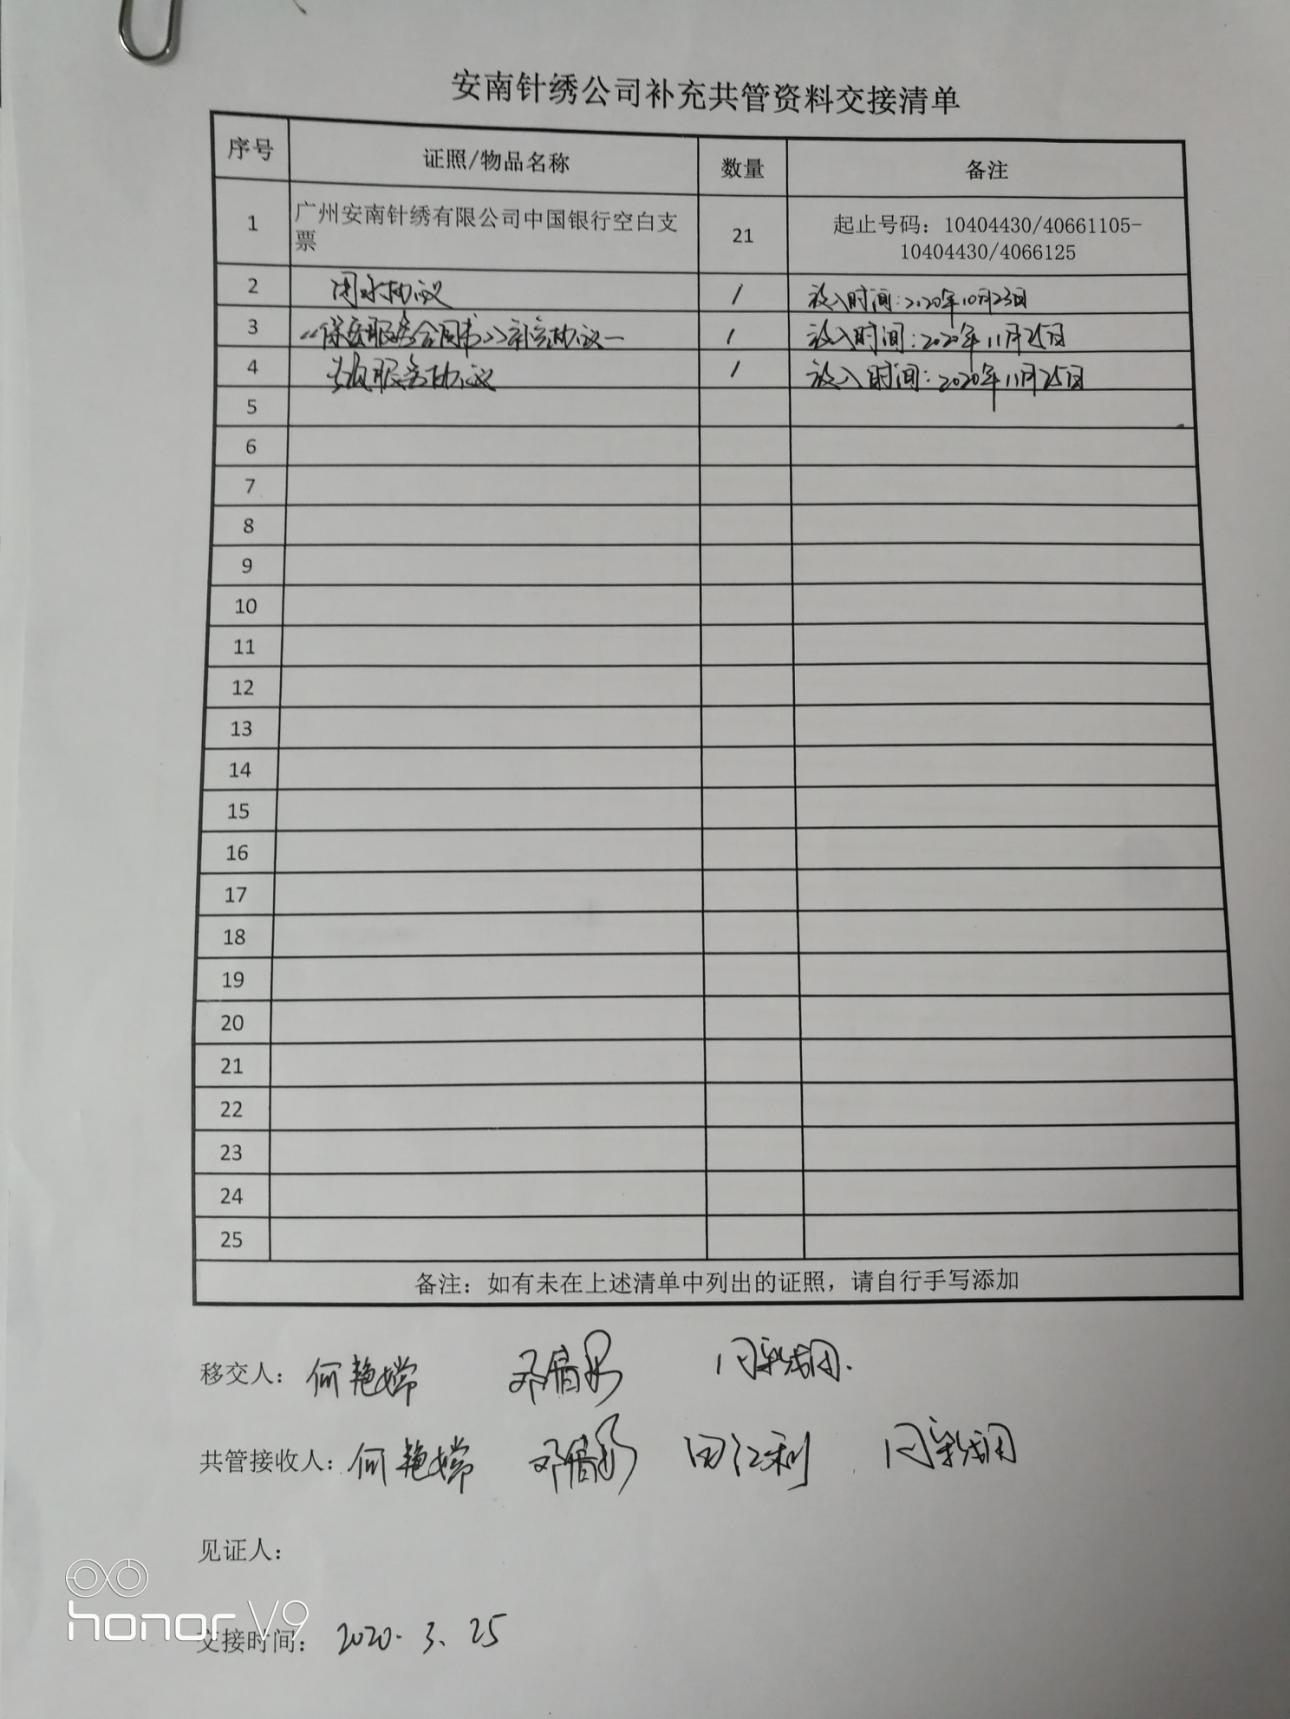 安南针绣公司补充共管资料交接清单
序号 证照/物品名称 数量 备注
1 广州安南针绣有限公司中国银行空白支票 21 起止号码：10404430/40661105-
10404430/4066125
2 用水协议 1 放入时间：2020年10月23日
3 《保安服务合同书》补充协议一 1 放入时间：2020年11月25日
4 服务协议 1 放入时间：2020年11月25日
5
6
7
8
9
10
11
12
13
14
15
16
17
18
19
20
21
22
23
24
25
备注：如有未在上述清单中列出的证照，请自行手写添加
移交人：何艳嫦
共管接收人：何艳嫦 田江利
见证人：
交接时间：2020.3.25
honor V9